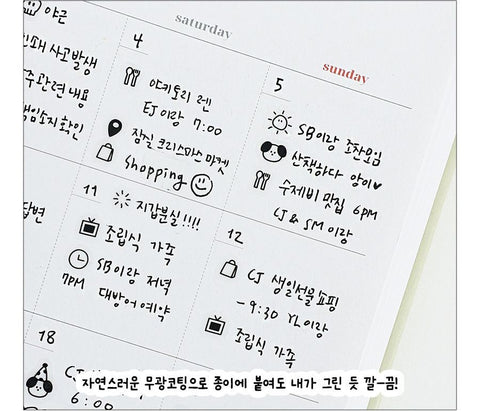 saturday
sunday
야근
사고발생
관련 내용
확인
답변
4
야키토리 렌
EJ이랑 7:00
잠실 크리스마스 마켓
Shopping
5
SB이랑 조찬모임
산책하다 양이♥
수제비 맛집 6PM
CJ & SM 이랑
11
지갑분실!!!!
조립식 가족
SB이랑 저녁
7PM 대방어 예약
12
CJ 생일선물 쇼핑
-9:30 YL이랑
조립식 가족
18
6:00
자연스러운 무광코팅으로 종이에 붙여도 내가 그린 듯 깔-끔!